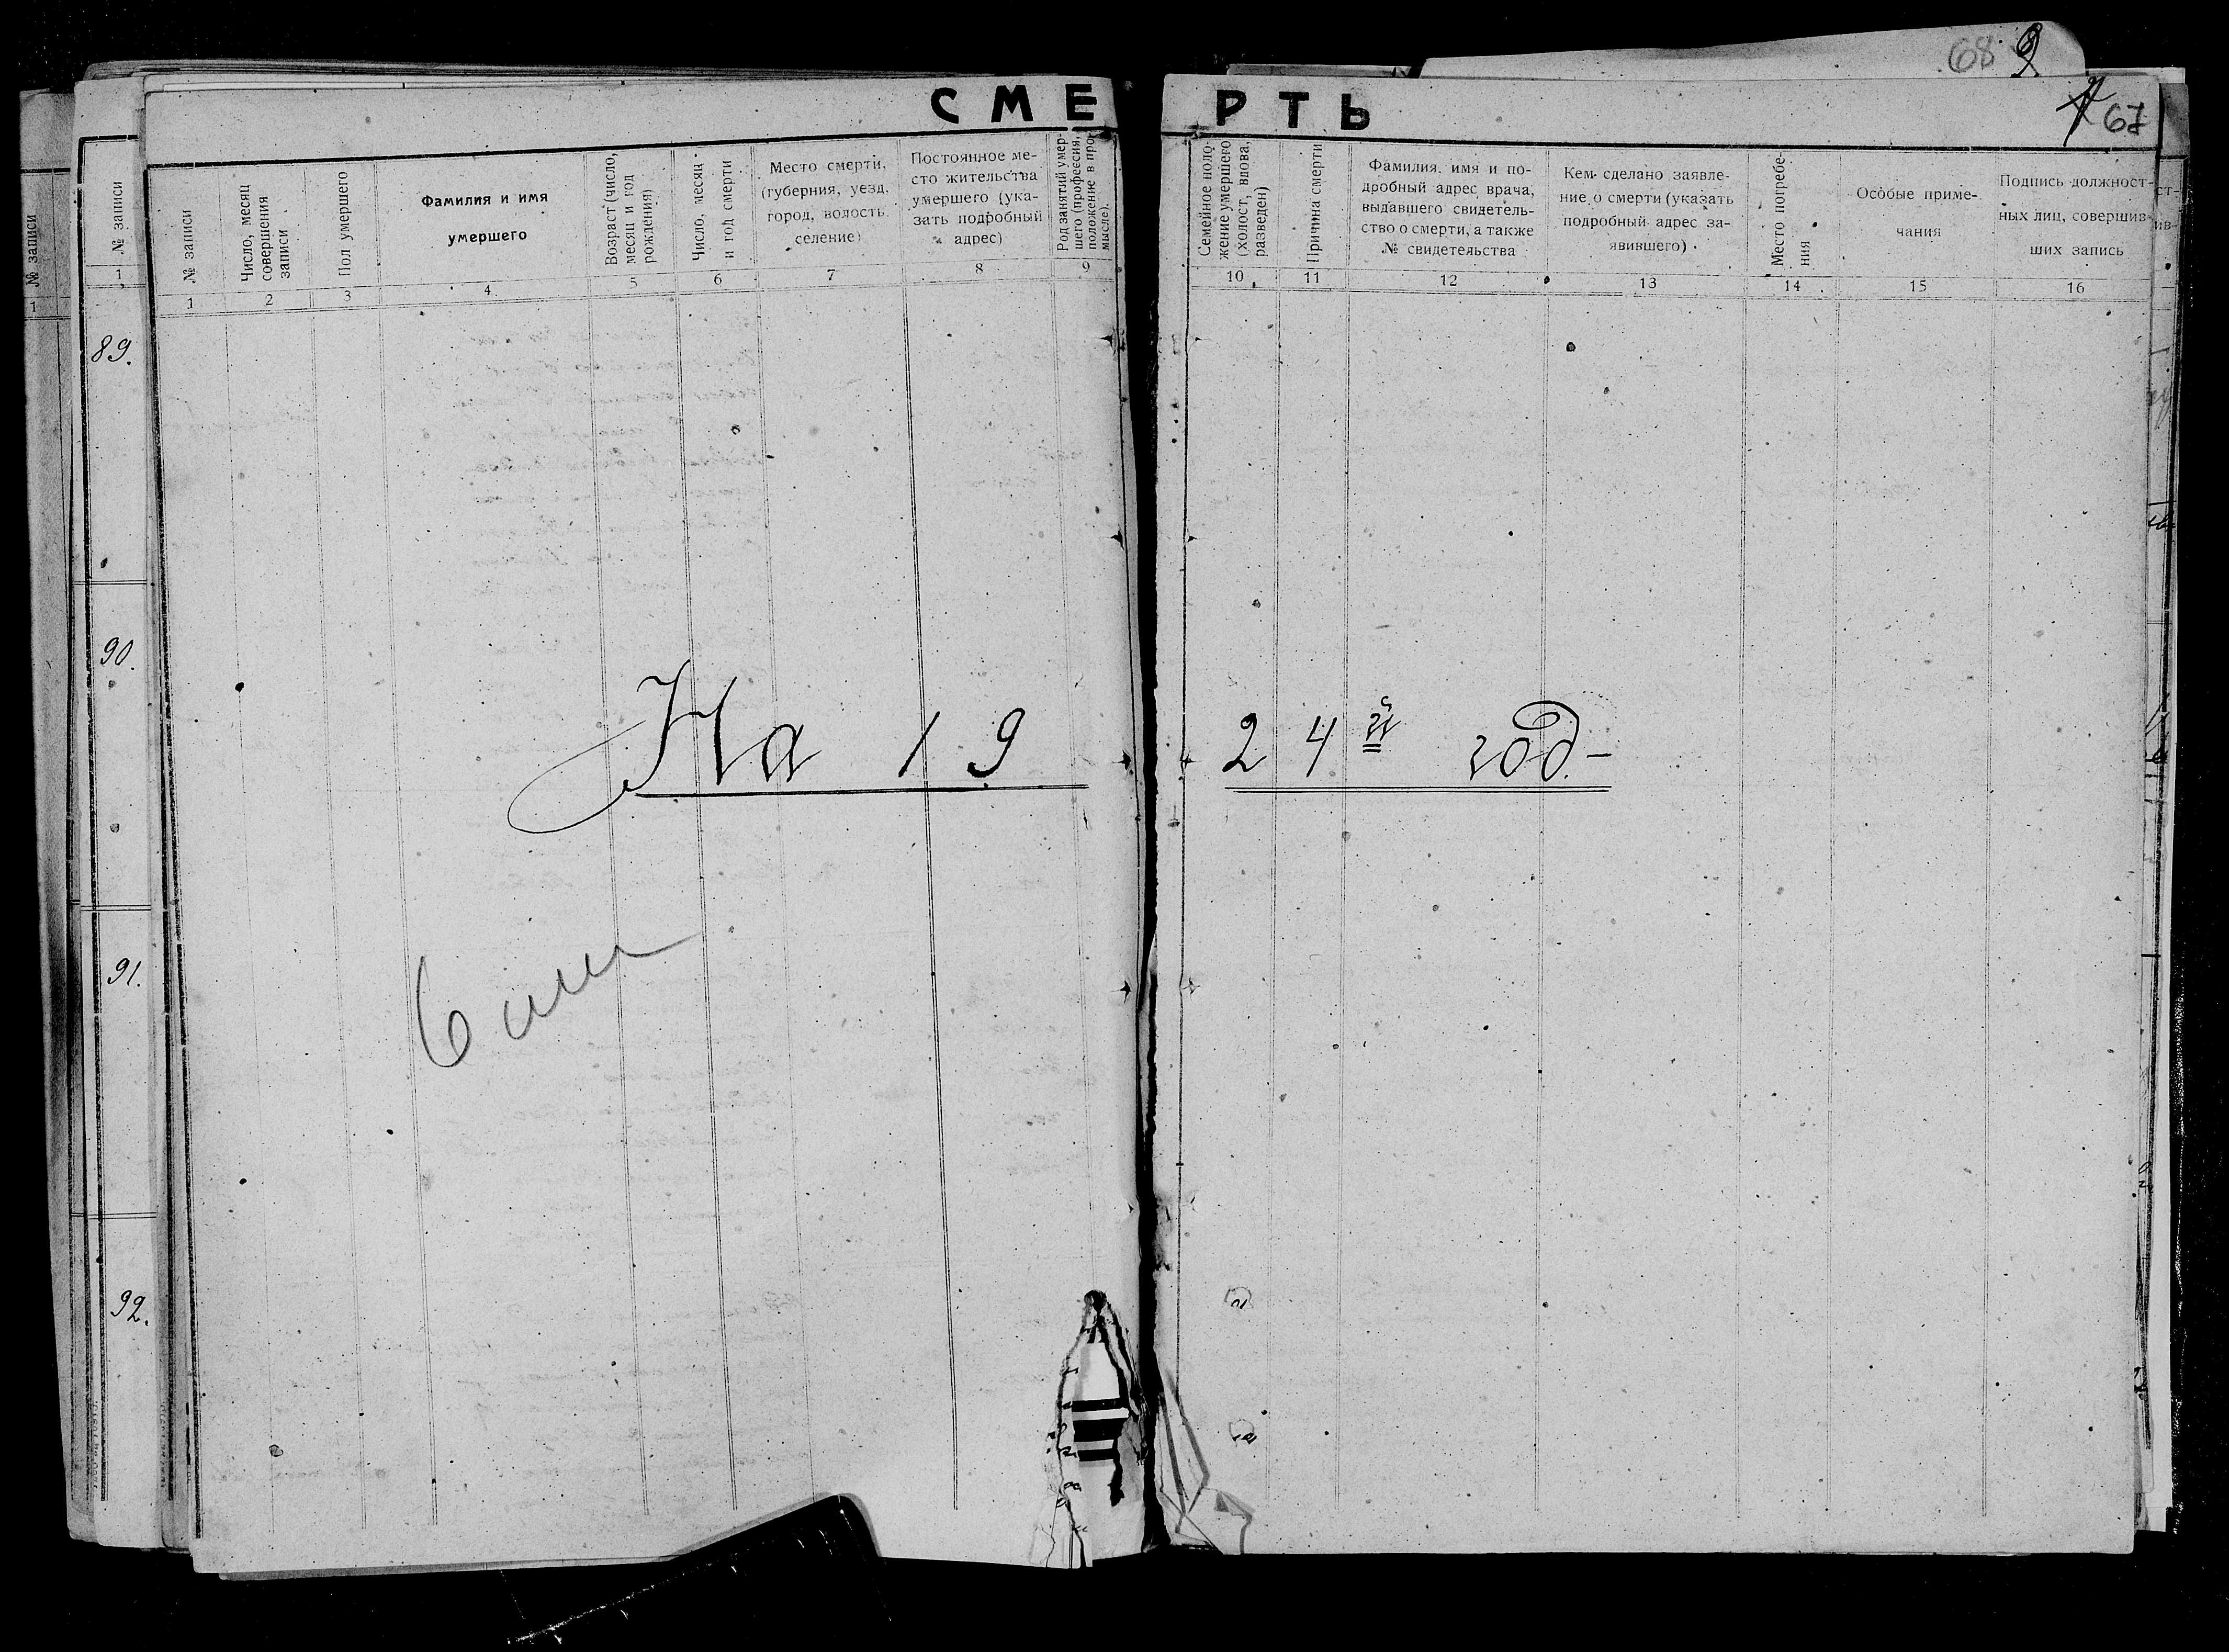 68 9
СМЕРТЬ
67
№ записи
№ записи
№ записи
Число, месяц совершения записи
Пол умершего
Фамилия и имя
умершего
Возраст (число,
месяц и год
рождения)
Число, месяц
и год смерти
Место смерти,
(губерния, уезд,
город, волость
селение)
Постоянное ме-
сто жительства
умершего (ука-
зать подробный
адрес)
Род занятий умер-
шего (профессия,
положение в про-
мысле).
Семейное поло-
жение умершего
(холост, вдова,
разведен)
Причина смерти
Фамилия, имя и по-
дробный адрес врача,
выдавшего свидетель-
ство о смерти, а также
№ свидетельства
Кем сделано заявле-
ние о смерти (указать
подробный адрес за-
явившего)
Место погребе-
ния
Особые приме-
чания
Подпись должност-
ных лиц, совершив-
ших запись
ст-
ив-
1 1 1 2 3 4 5 6 7 8 9 10 11 12 13 14 15 16
89.
90.
На 1924й год.-
91.
92.